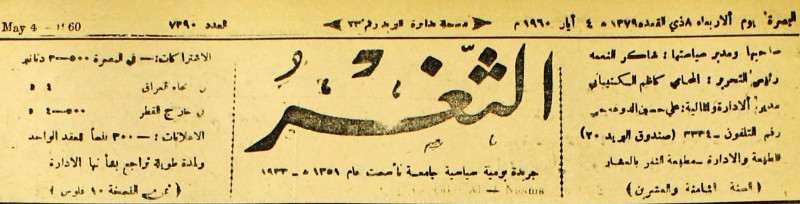 البصرة: يوم الاربعاء ٨ ذي القعدة ١٣٧٩ ه ٤ أيار ١٩٦٠ م
مسجلة بدائرة البريد رقم ٢٣
العدد ٧٣٩٠
May 4 - 1960
صاحبها ومدير سياستها: شاكر النعمه
رئيس التحرير: المحامي كاظم
مدير الادارة والمالية: علي حسين
رقم التلفون - ٣٣٣٤ (صندوق البريد ٢٠)
المطبعة والادارة - مطبعة الثغر بالعشار
(السنة الثامنة والعشرين)
الثغر
جريدة يومية سياسية جامعة تأسست عام ١٣٥٩ ه - ١٩٣٣
الاشتراكات: - في البصرة ٥٠٠-٣ دنانير
انحاء العراق ٥ ٤
خارج القطر ٥٠٠-٤ ٥
الاعلانات: - ٣٠٠ فلساً للعقد الواحد
ولمدة طويلة تراجع بشأنها الادارة
(ثمن النسخة ١٠ فلوس)